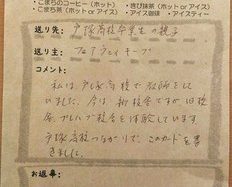 ・こまちのコーヒー(ホット)
・こまち茶(ホット or アイス)
・きび抹茶(ホット)
・アイス珈琲 ・アイスティー
送り先:戸塚高校卒業生の親子
送り主:フェアウェイキープ
コメント:
私は、戸塚高校で教師をして
いました。今は新校舎ですが旧校
舎、プレハブ校舎を体験しています
戸塚高校つながりで、このカードを書
きました。
お返事: